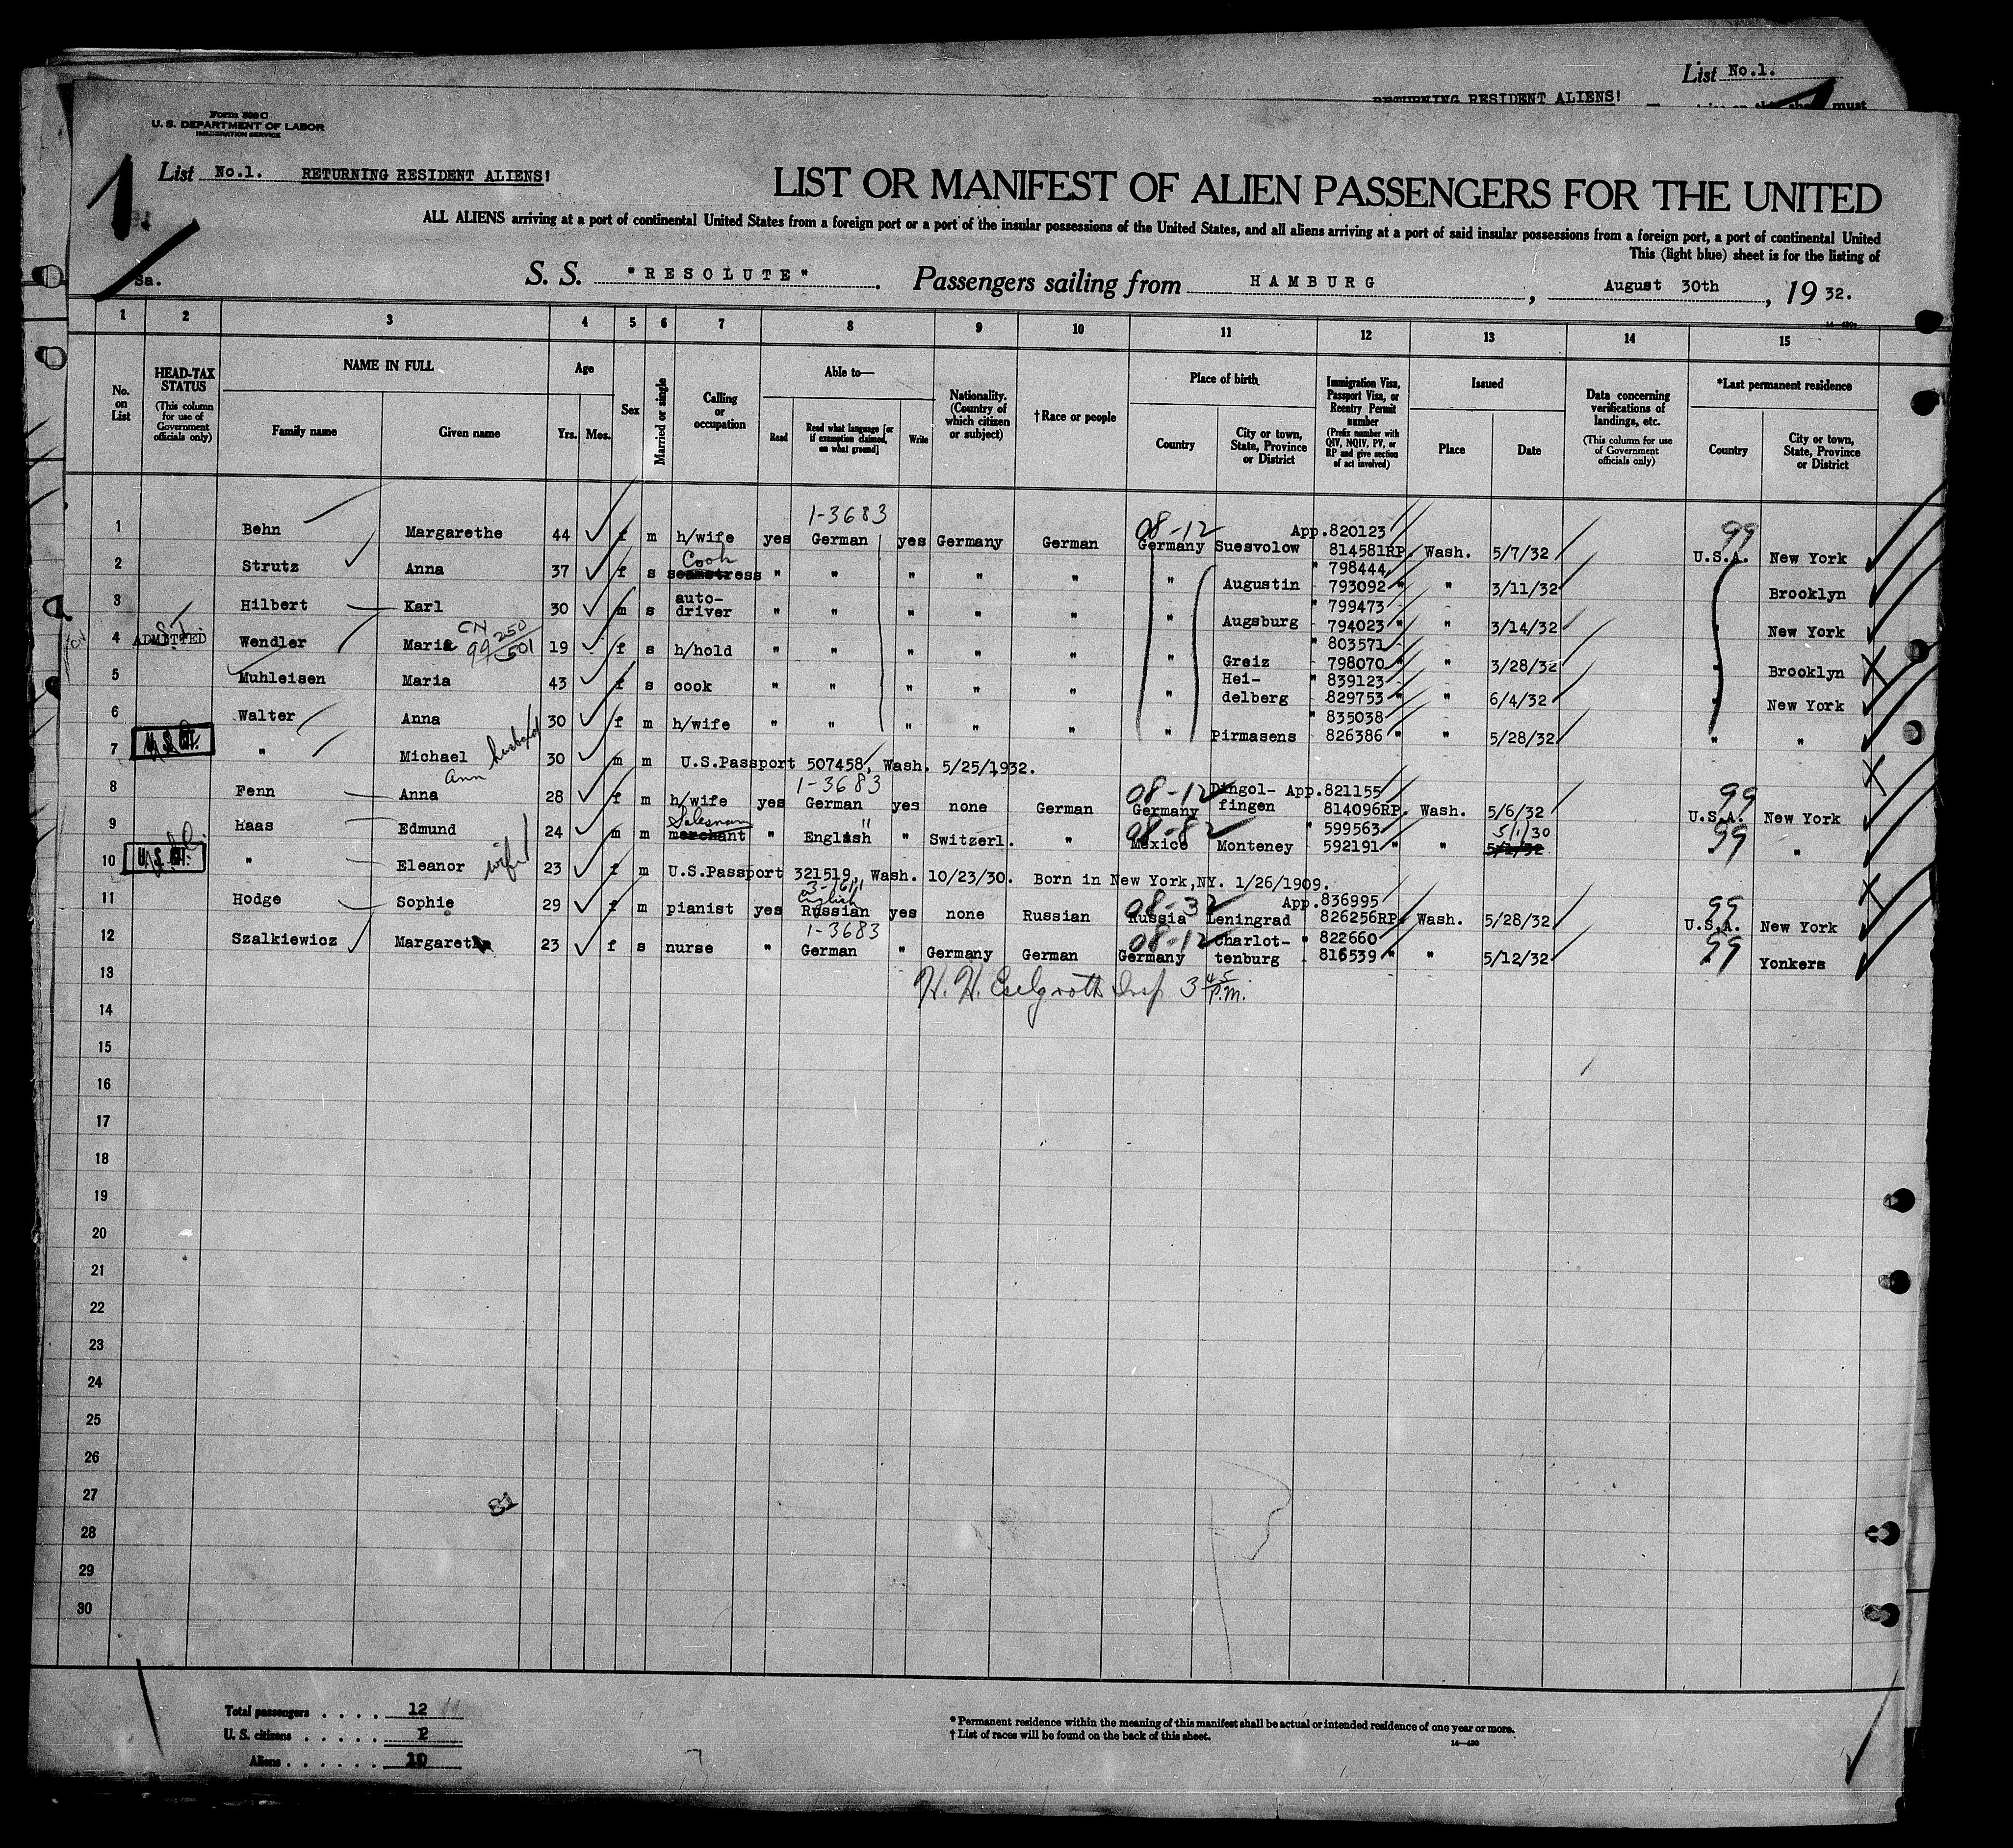 List No.1.
RETURNING RESIDENT ALIENS!
must
Form 500 C
U. S. DEPARTMENT OF LABOR
IMMIGRATION SERVICE
1.
List No.1. RETURNING RESIDENT ALIENS!
LIST OR MANIFEST OF ALIEN PASSENGERS FOR THE UNITED
ALL ALIENS arriving at a port of continental United States from a foreign port or a port of the insular possessions of the United States, and all aliens arriving at a port of said insular possessions from a foreign port, a port of continental United
This (light blue) sheet is for the listing of
Sa.
S. S. "RESOLUTE". Passengers sailing from HAMBURG, August 30th, 19 32.
1 2 3 4 5 6 7 8 9 10 11 12 13 14 15
No. on List
HEAD-TAX STATUS (This column for use of Government officials only)
NAME IN FULL
Family name Given name
Age
Yrs. Mos.
Sex
Married or single
Calling or occupation
Able to—
Read Read what language [or if exemption claimed, on what ground] Write
Nationality. (Country of which citizen or subject)
†Race or people
Place of birth
Country City or town, State, Province or District
Immigration Visa, Passport Visa, or Reentry Permit number (Prefix number with QIV, NQIV, PV, or RP and give section of act involved)
Issued
Place Date
Data concerning verifications of landings, etc. (This column for use of Government officials only)
*Last permanent residence
Country City or town, State, Province or District
1-3683 08-12 App.820123 99
1 Behn Margarethe 44 f m h/wife yes German yes Germany German Germany Suesvolow 814581RP. Wash. 5/7/32 U.S.A. New York
Cook " 798444
2 Strutz Anna 37 f s seamstress " " " " " " Augustin 793092 " " 3/11/32 " Brooklyn
auto- " 799473
3 Hilbert Karl 30 m s driver " " " " " " Augsburg 794023 " " 3/14/32 " New York
CN 99 250/501 " 803571
4 ADMITTED S.I. Wendler Maria 19 f s h/hold " " " " " " Greiz 798070 " " 3/28/32 " Brooklyn
Hei- " 839123
5 Muhleisen Maria 43 f s cook " " " " " " delberg 829753 " " 6/4/32 " New York
" 835038
6 Walter Anna 30 f m h/wife " " " " " " Pirmasens 826386 " " 5/28/32 " "
7 " Michael husband 30 m m U.S.Passport 507458, Wash. 5/25/1932.
Ann 1-3683 08-12 Dingol- App.821155 99
8 Fenn Anna 28 f m h/wife yes German yes none German Germany fingen 814096RP. Wash. 5/6/32 U.S.A. New York
Salesman " 08-82 " 599563 5/1/30 99
9 Haas Edmund 24 m m merchant " English " Switzerl. " Mexico Monteney 592191 " " 5/1/32 " "
10 U.S. Cit. " Eleanor wife 23 f m U.S.Passport 321519, Wash. 10/23/30. Born in New York,NY. 1/26/1909.
English 08-32 App.836995 99
11 Hodge Sophie 29 f m pianist yes Russian yes none Russian Russia Leningrad 826256RP. Wash. 5/28/32 U.S.A. New York
1-3683 08-12 Charlot- " 822660 99
12 Szalkiewicz Margaretha 23 f s nurse " German " Germany German Germany tenburg 816539 " " 5/12/32 Yonkers
13
3 45 P.M.
14
15
16
17
18
19
20
21
22
23
24
25
26
27
28
29
30
Total passengers . . . . 12 11
U. S. citizens . . . . . 2
Aliens . . . . . . 10
* Permanent residence within the meaning of this manifest shall be actual or intended residence of one year or more.
† List of races will be found on the back of this sheet.
14—430